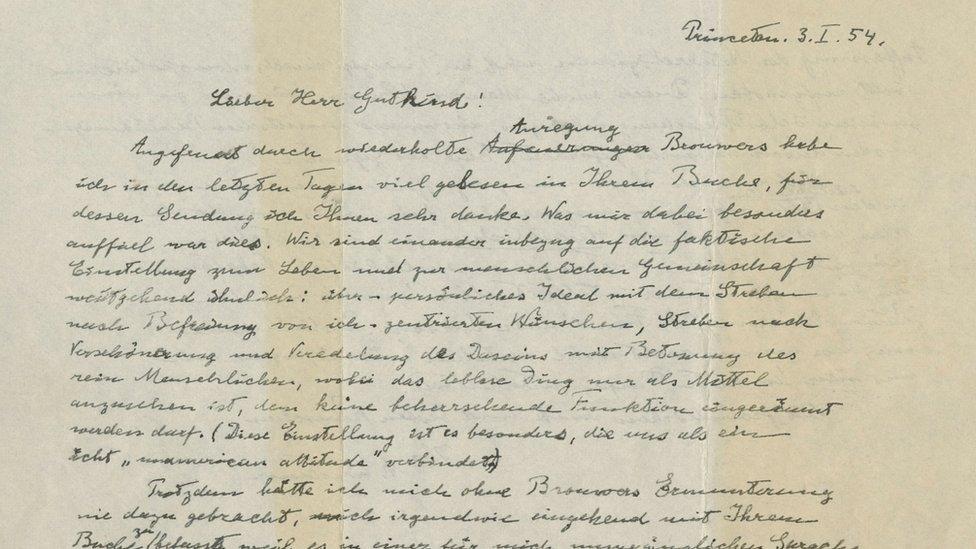 Princeton. 3. I. 54.
Lieber Herr Gutkind!
Anregung
Angefeuert durch wiederholte Anfeuerungen Brouwers habe
ich in den letzten Tagen viel gelesen in Ihrem Buche, für
dessen Sendung ich Ihnen sehr danke. Was mir dabei besonders
auffiel war dies. Wir sind einander inbezug auf die faktische
Einstellung zum Leben und zur menschlichen Gemeinschaft
weitgehend ähnlich: über-persönliches Ideal mit dem Streben
nach Befreiung von ich-zentrierten Wünschen, Streben nach
Verschönerung und Veredelung des Daseins mit Betonung des
rein Menschlichen, wobei das leblose Ding nur als Mittel
anzusehen ist, dem keine beherrschende Funktion eingeräumt
werden darf. (Diese Einstellung ist es besonders, die uns als ein
echt „unamerican attitude" verbindet)
Trotzdem hätte ich mich ohne Brouwers Ermunterung
nie dazu gebracht, mich irgendwie eingehend mit Ihrem
Buche zu befassen weil es in einer für mich unzugänglichen Sprache